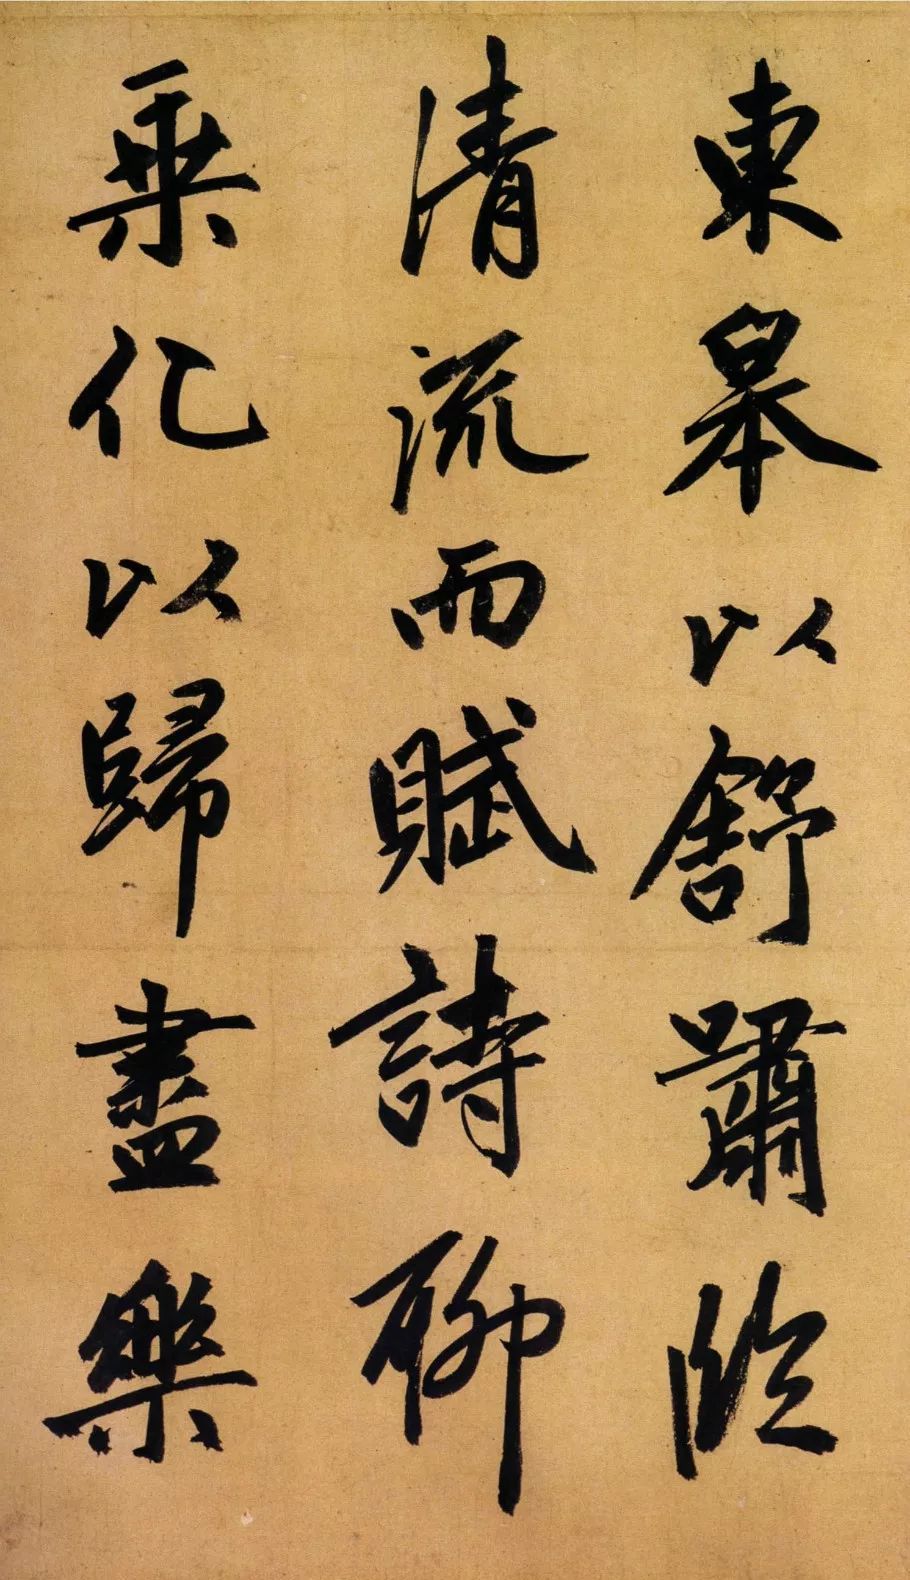 東皋以舒嘯臨
清流而賦詩聊
乘化以歸盡樂